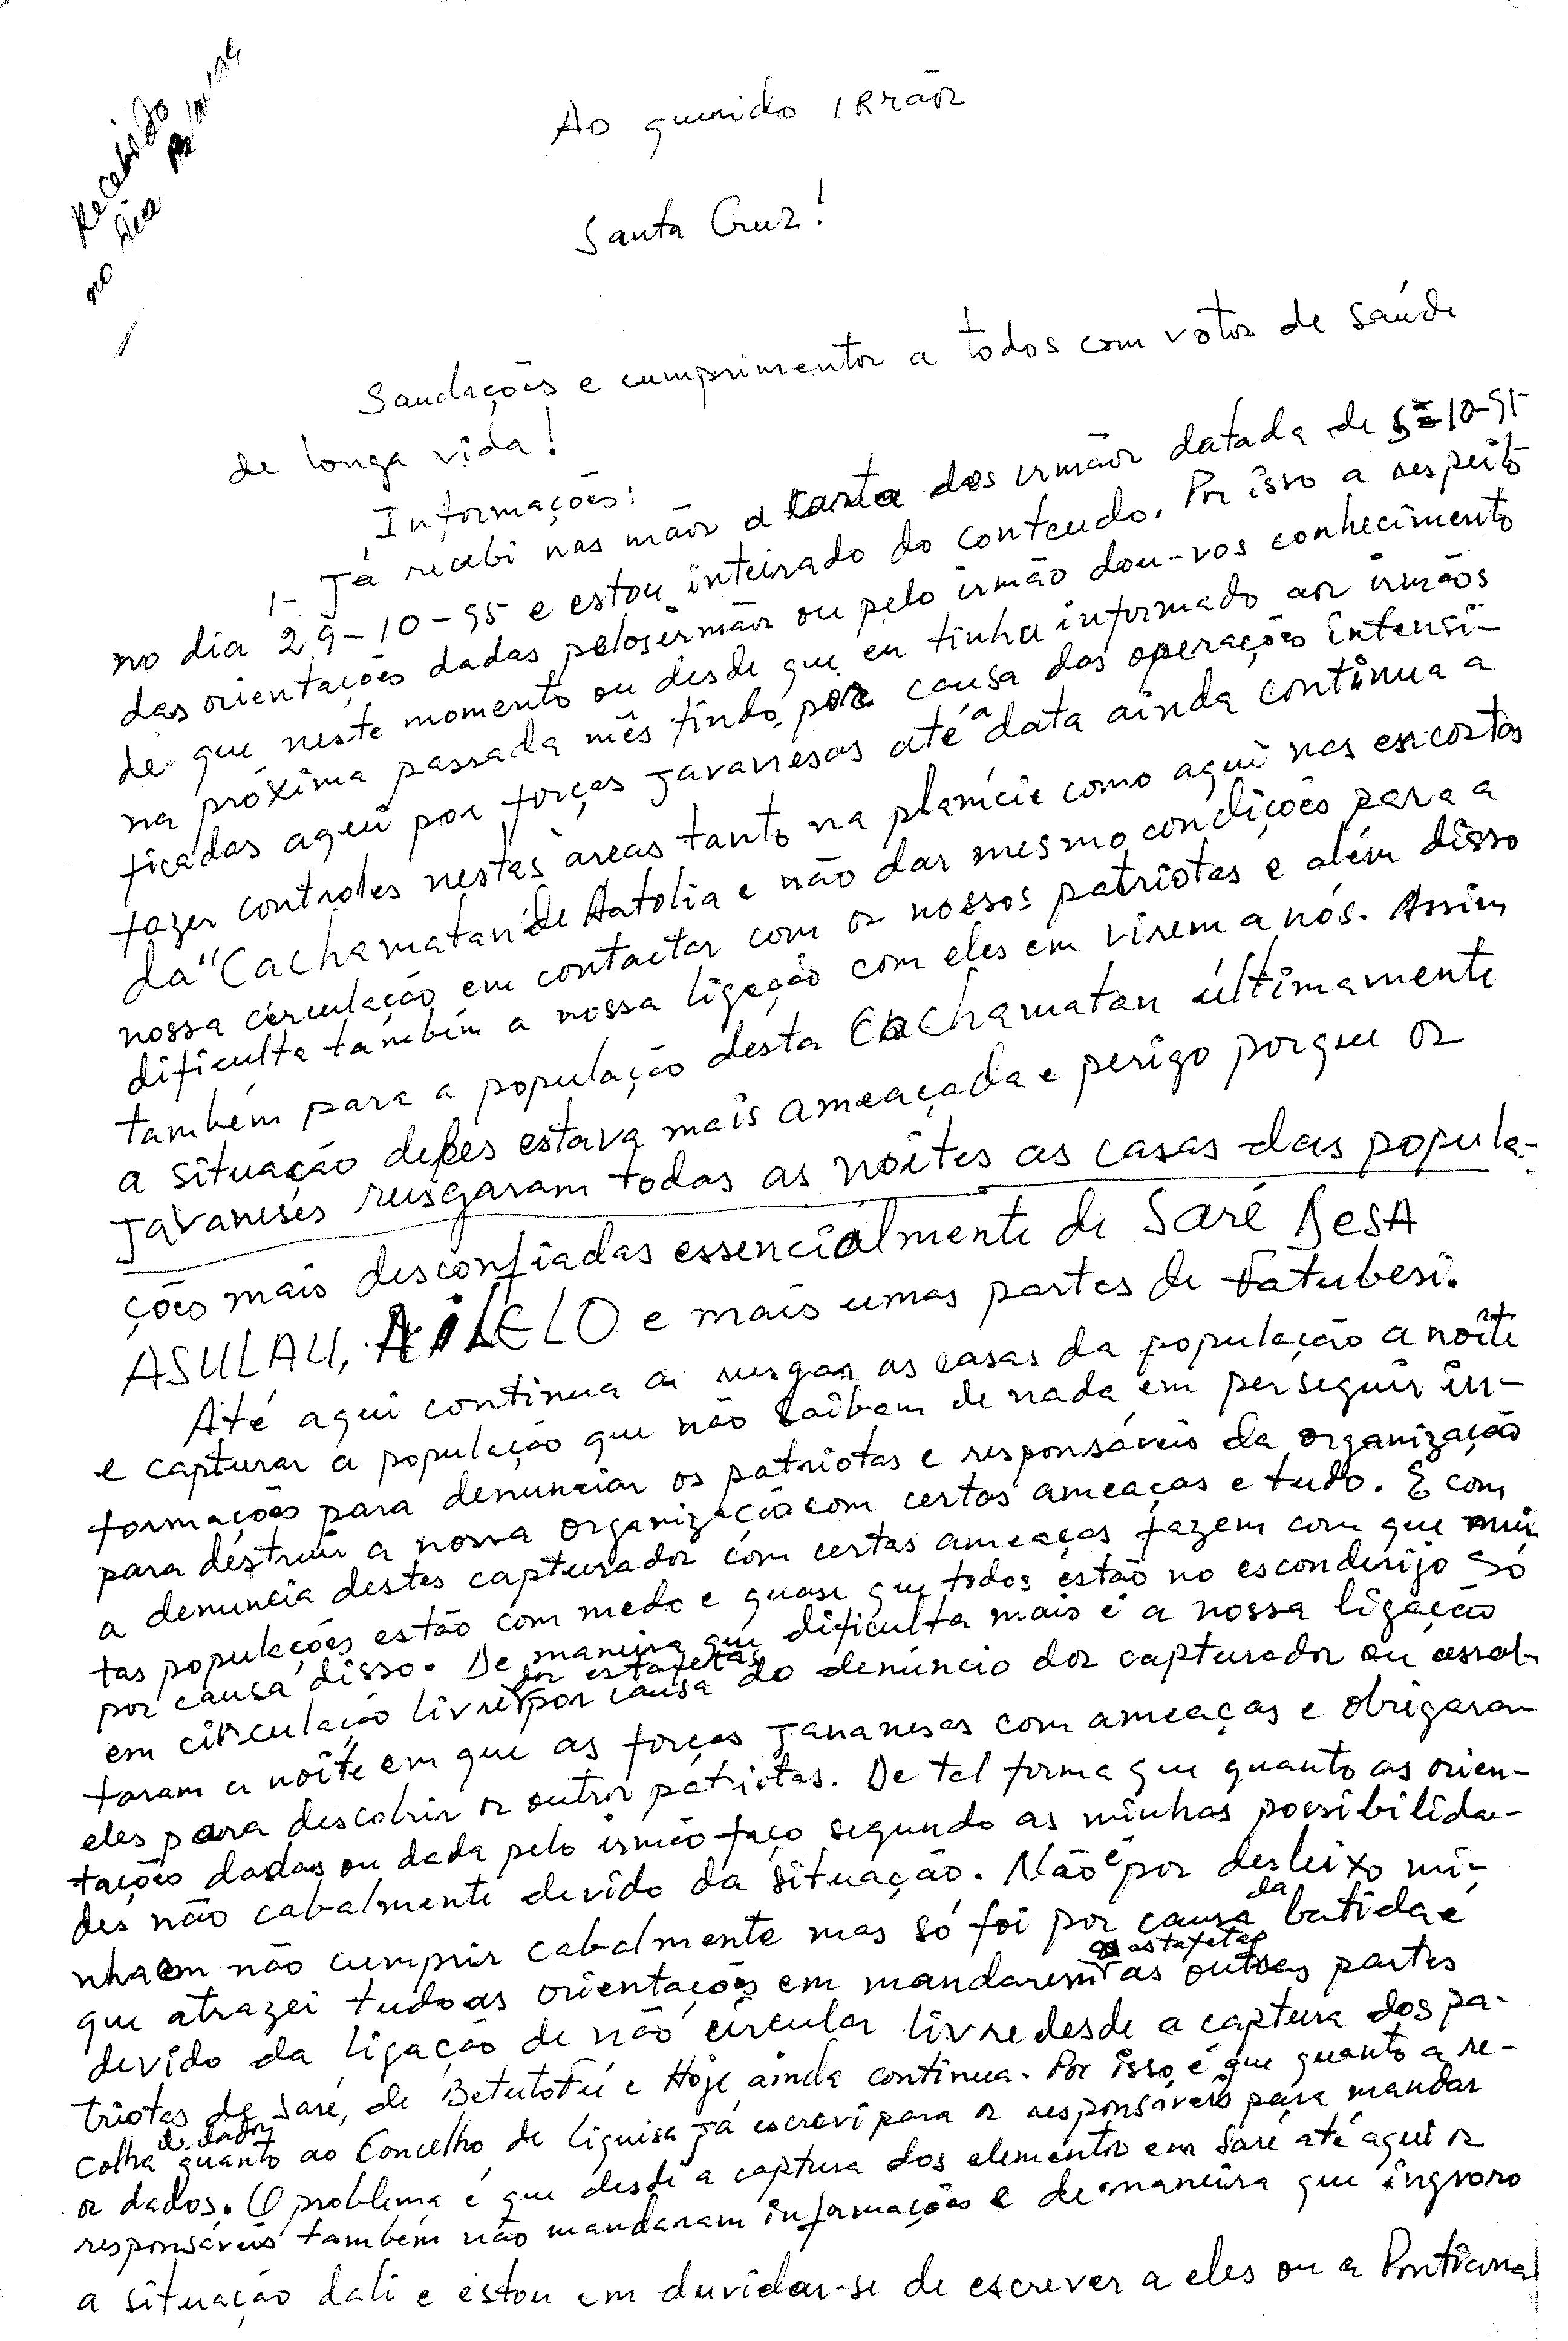 Recebido
no dia
Ao querido IRMÃO
Santa Cruz!
Saudações e cumprimentos a todos com votos de saúde
de longa vida!
Informações:
1- Já recebi nas mãos a carta dos irmãos datada de 5-10-95
no dia 29-10-95 e estou inteirado do conteudo. Por isso a respeito
das orientações dadas pelos irmãos ou pelo irmão dou-vos conhecimento
de que neste momento ou desde que eu tinha informado aos irmãos
na próxima passada mês findo, por causa das operações intensi-
ficadas aqui por forças javanesas até a data ainda continua a
fazer controles nestas àreas tanto na planície como aqui nas encostas
da "Cachamatan de Hatolia e não dar mesmo condições para a
nossa circulação em contactar com os nossos patriotas e além disso
dificulta também a nossa ligação com eles em virem a nós. Assim
também para a população desta Cachamatan últimamente
a situação deles estava mais ameaçada e perigo porque os
javaneses rusgaram todas as noites as casas das popula-
ções mais desconfiadas essencialmente de Saré DESA
ASULAU, AILELO e mais umas partes de Fatubesi.
Até aqui continua a rusgar as casas da população a noite
e capturar a população que não saibam de nada em perseguir in-
formações para denunciar os patriotas e responsáveis da organização
para destruir a nossa organização com certas ameaças e tudo. E com
a denuncia destes capturados com certas ameaças fazem com que mui-
tas populações estão com medo e quase que todos estão no esconderijo só
por causa disso. De maneira que dificulta mais é a nossa ligação
em circulação livre dos estafetas por causa do denúncio dos capturados ou assal-
taram a noite em que as forças javanesas com ameaças e obrigaram
eles para descobrir os outros patriotas. De tal forma que quanto as orien-
tações dadas ou dada pelo irmão faço segundo as minhas possibilida-
des não cabalmente devido da situação. Não é por desleixo mi-
nha em não cumprir cabalmente mas só foi por causa da batida é
que atrazei tudo as orientações em mandarem estafetas as outras partes
devido da ligação de não circular livre desde a captura dos pa-
triotas de Saré, de Betulofu e Hoje ainda continua. Por isso é que quanto a re-
colha de dados quanto ao Concelho de Liquisa já escrevi para os responsáveis para mandar
os dados. O problema é que desde a captura dos elementos em Saré até aqui os
responsáveis também não mandaram informações e de maneira que ingnoro
a situação dali e estou em duvidar-se de escrever a eles ou a